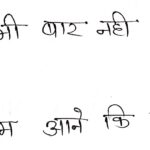 बार नही
आने कि